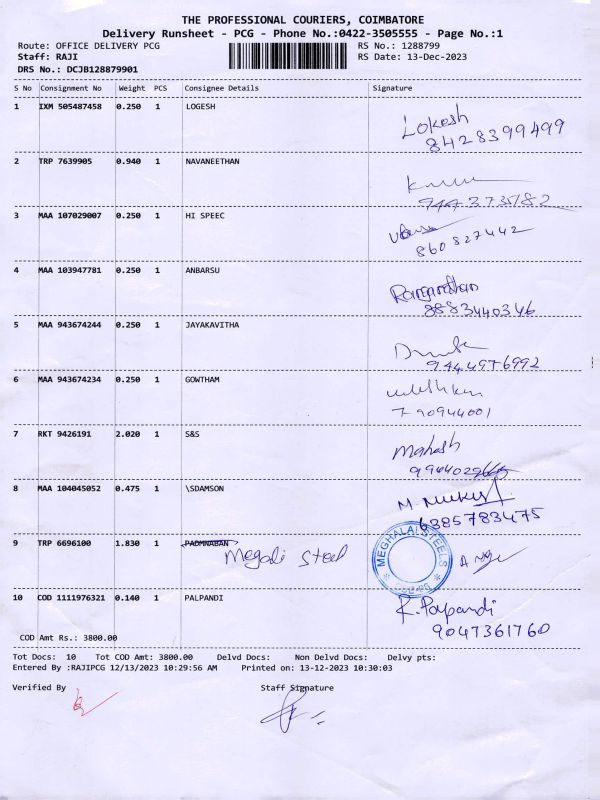 THE PROFESSIONAL COURIERS, COIMBATORE
Delivery Runsheet - PCG - Phone No.:0422-3505555 - Page No.:1
Route: OFFICE DELIVERY PCG RS No.: 1288799
Staff: RAJI RS Date: 13-Dec-2023
DRS No.: DCJB128879901
S No Consignment No Weight PCS Consignee Details Signature
1 IXM 505487458 0.250 1 LOGESH
Lokesh
8428399499
2 TRP 7639905 0.940 1 NAVANEETHAN
9443735182
3 MAA 107029007 0.250 1 HI SPEEC
860827442
4 MAA 103947781 0.250 1 ANBARSU
Ranganathan
8883440346
5 MAA 943674244 0.250 1 JAYAKAVITHA
9444976992
6 MAA 943674234 0.250 1 GOWTHAM
790944001
7 RKT 9426191 2.020 1 S&S
Mahesh
8 MAA 104045052 0.475 1 \SDAMSON
M.
6385783475
9 TRP 6696100 1.830 1 PADMNABAN
Megali Steel
MEGHALAI STEELS
10 COD 1111976321 0.140 1 PALPANDI
R. Palpandi
9047361760
COD Amt Rs.: 3800.00
Tot Docs: 10 Tot COD Amt: 3800.00 Delvd Docs: Non Delvd Docs: Delvy pts:
Entered By :RAJIPCG 12/13/2023 10:29:56 AM Printed on: 13-12-2023 10:30:03
Verified By Staff Signature